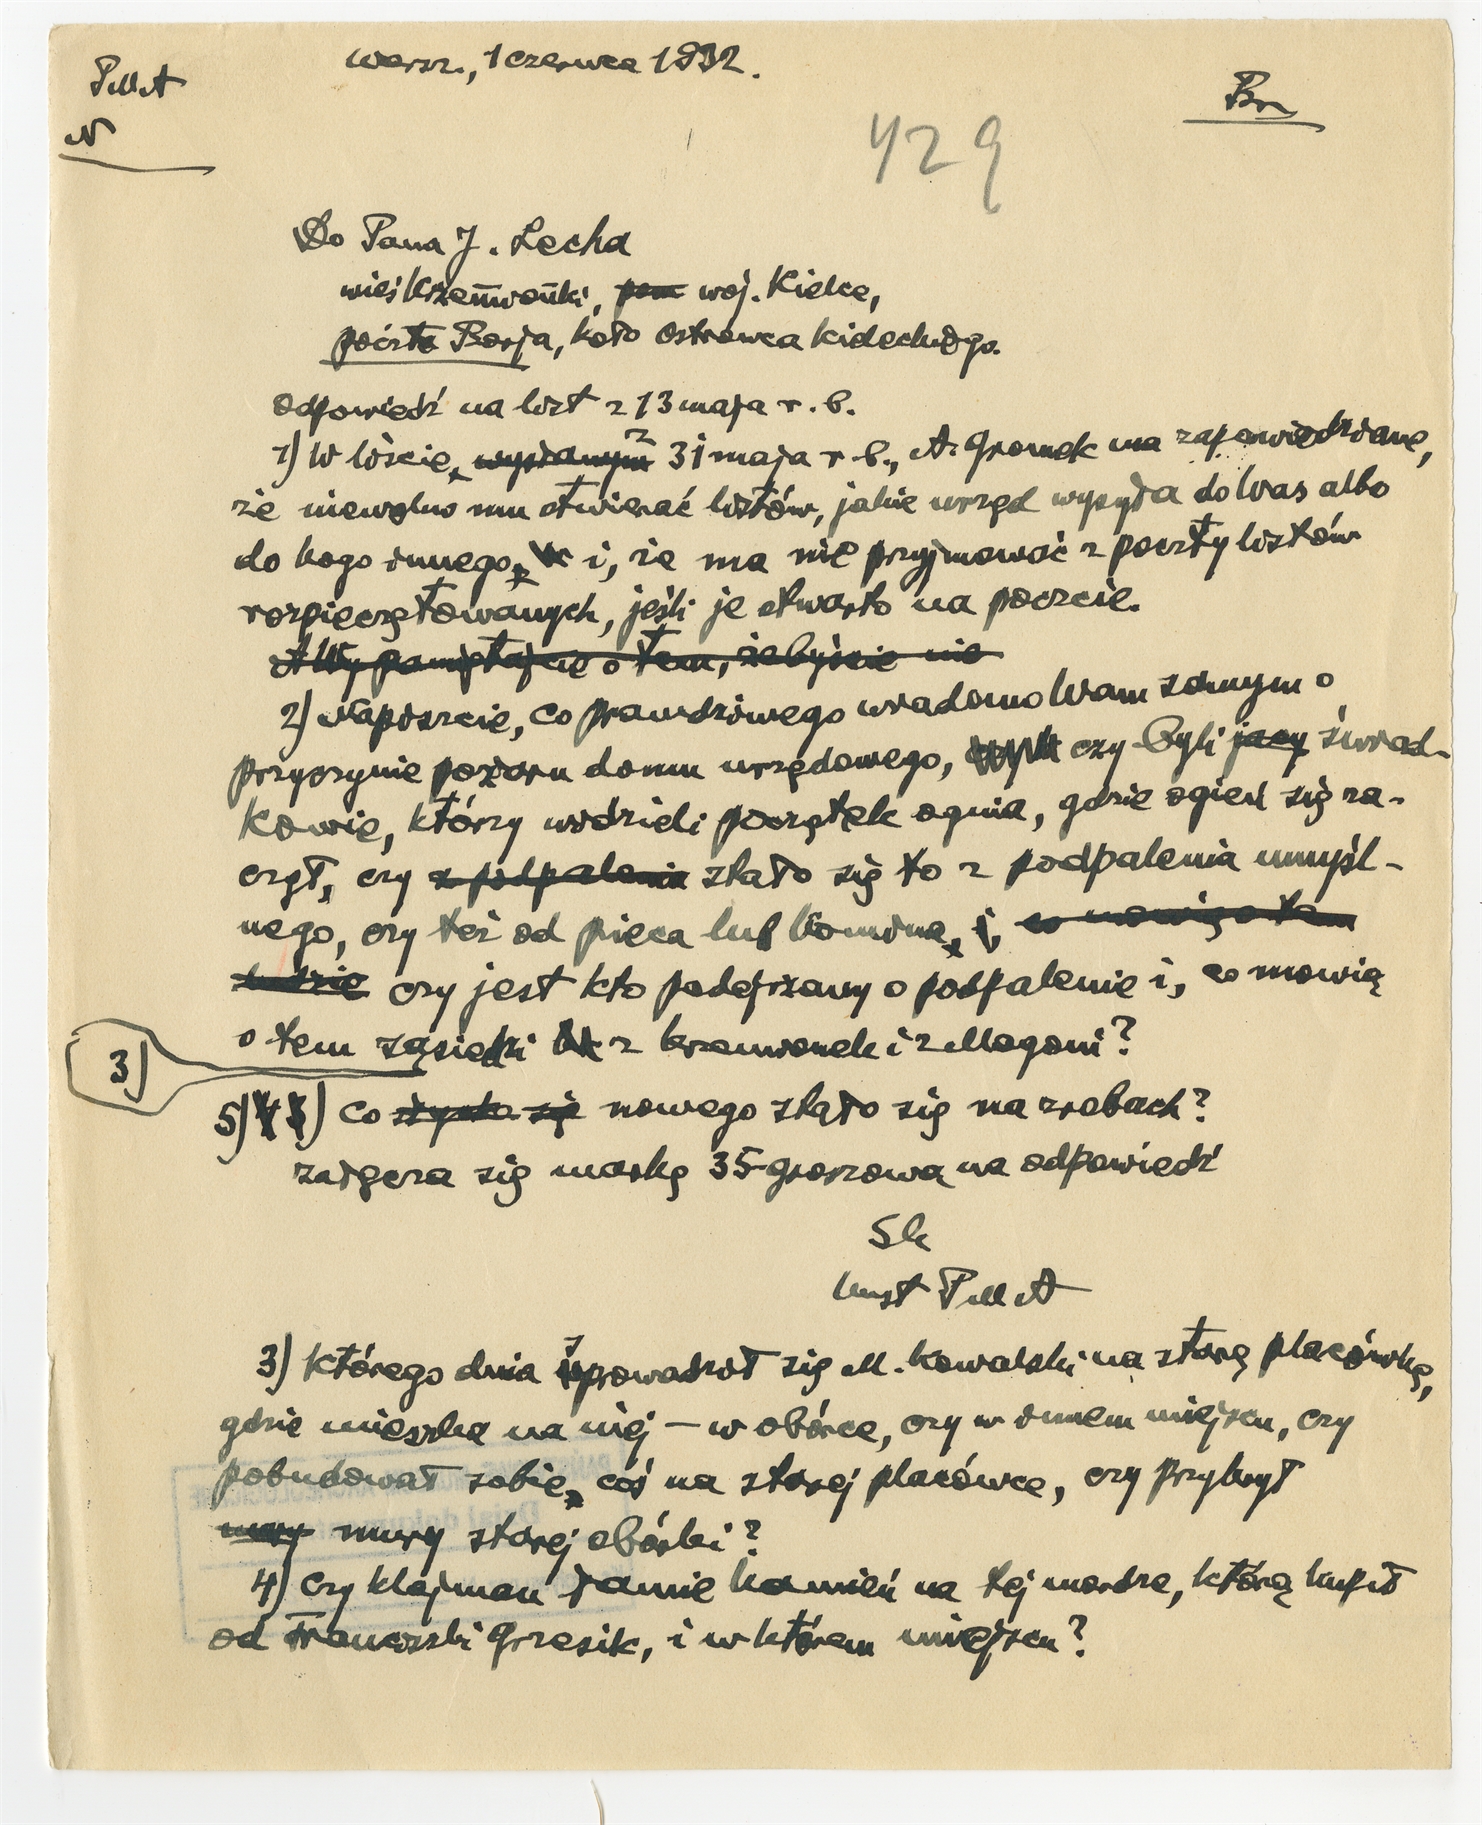 Warsz., 1 czerwca 1932.
PMA
N
Br
429
Do Pana J. Lecha
wieś Krzemionki, pow woj. Kielce,
poczta Borja, koło Ostrowca Kieleckiego.
Odpowiedź na list z 13 maja r. b.
1) W liście, wysłanym z 31 maja r. b., A. Gromek ma zapowiedziane,
że niewolno mu otwierać listów, jakie urząd wysyła do Was albo
do kogo innego, i, że ma nie przyjmować z poczty listów
rozpieczętowanych, jeśli je otwarto na poczcie.
A Wy pamiętajcie o tem, żebyście nie
2) Napiszcie, co prawdziwego wiadomo Wam samym o
przyczynie pożaru domu urzędowego, czy byli jacy świad-
kowie, którzy widzieli początek ognia, gdzie ogień się za-
czął, czy z podpalenia stało się to z podpalenia umyśl-
nego, czy też od pieca lub komina, i, co mówią o tem
ludzie czy jest kto podejrzany o podpalenie i, co mówią
o tem sąsiedzi z Krzemionek i z Magoni?
3)
5) 4 3) Co słychać się nowego stało się na zrębach?
Załącza się markę 35-groszową na odpowiedź
Sk
Kust PMA
3) Którego dnia sprowadził się M. Kowalski na starą placówkę,
gdzie mieszka na niej – w obórce, czy w innem miejscu, czy
pobudował sobie, coś na starej placówce, czy przykrył
mury mury starej obórki?
4) Czy Klajman łamie kamień na tej mordze, którą kupił
od Franciszki Grzesik, i w którem miejscu?